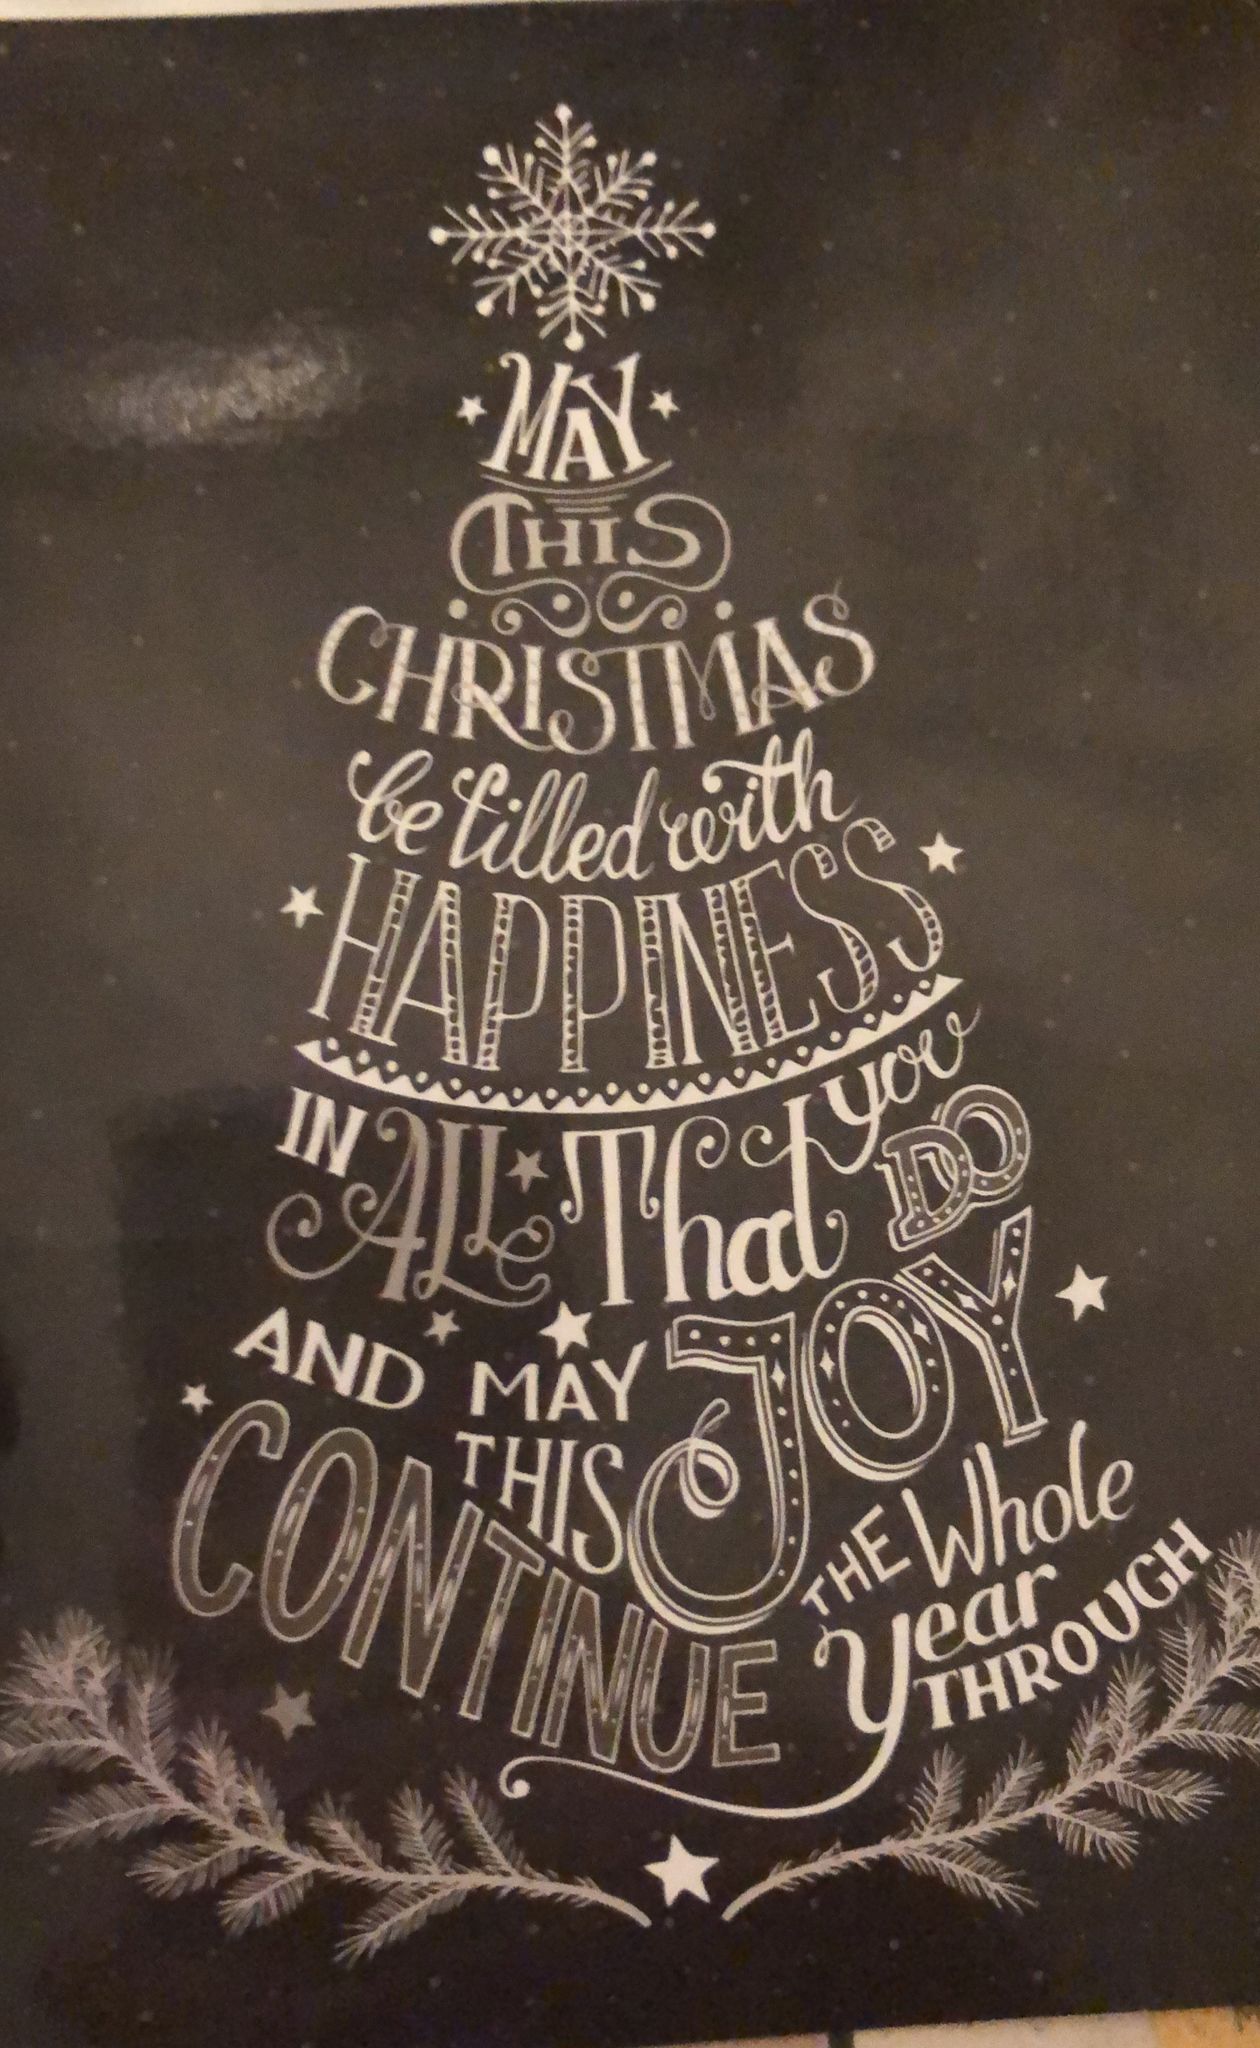 MAY
THIS
CHRISTMAS
be filled with
HAPPINESS
IN ALL That you DO
AND MAY THIS JOY
CONTINUE
THE Whole
year
THROUGH